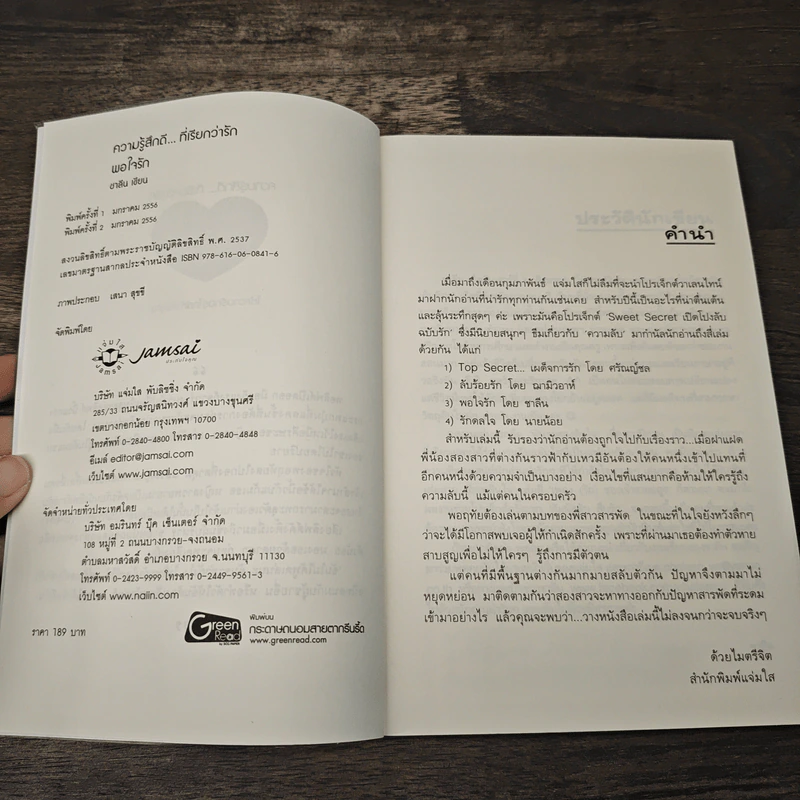 ความรู้สึกดี... ที่เรียกว่ารัก
พอใจรัก
ชาลีน เขียน
พิมพ์ครั้งที่ 1 มกราคม 2556
พิมพ์ครั้งที่ 2 มกราคม 2556
สงวนลิขสิทธิ์ตามพระราชบัญญัติลิขสิทธิ์ พ.ศ. 2537
เลขมาตรฐานสากลประจำหนังสือ ISBN 978-616-06-0841-6
ภาพประกอบ เสนา สุขชี
จัดพิมพ์โดย
แจ่มใส
Jamsai
jamsai
บริษัท แจ่มใส พับลิชชิ่ง จำกัด
285/33 ถนนจรัญสนิทวงศ์ แขวงบางขุนศรี
เขตบางกอกน้อย กรุงเทพฯ 10700
โทรศัพท์ 0-2840-4800 โทรสาร 0-2840-4848
อีเมล์ editor@jamsai.com
เว็บไซต์ www.jamsai.com
จัดจำหน่ายทั่วประเทศโดย
บริษัท อมรินทร์ บุ๊ค เซ็นเตอร์ จำกัด
108 หมู่ที่ 2 ถนนบางกรวย-จงถนอม
ตำบลมหาสวัสดิ์ อำเภอบางกรวย จ.นนทบุรี 11130
โทรศัพท์ 0-2423-9999 โทรสาร 0-2449-9561-3
เว็บไซต์ www.naiin.com
ราคา 189 บาท
Green Read
พิมพ์บน
กระดาษถนอมสายตากรีนรี้ด
www.greenread.com
คำนำ
เมื่อมาถึงเดือนกุมภาพันธ์ แจ่มใสก็ไม่ลืมที่จะนำโปรเจ็กต์วาเลนไทน์
มาฝากนักอ่านที่น่ารักทุกท่านกันเช่นเคย สำหรับปีนี้เป็นอะไรที่น่าตื่นเต้น
และลุ้นระทึกสุดๆ ค่ะ เพราะมันคือโปรเจ็กต์ 'Sweet Secret เปิดโปงลับ
ฉบับรัก' ซึ่งมีนิยายสนุกๆ ธีมเกี่ยวกับ 'ความลับ' มากำนัลนักอ่านถึงสี่เล่ม
ด้วยกัน ได้แก่
1) Top Secret... เผด็จการรัก โดย ศรัณญ์ชล
2) ลับร้อยรัก โดย ฌามิวอาห์
3) พอใจรัก โดย ชาลีน
4) รักดลใจ โดย นายน้อย
สำหรับเล่มนี้ รับรองว่านักอ่านต้องถูกใจไปกับเรื่องราว...เมื่อฝาแฝด
พี่น้องสองสาวที่ต่างกันราวฟ้ากับเหวมีอันต้องให้คนหนึ่งเข้าไปแทนที่
อีกคนหนึ่งด้วยความจำเป็นบางอย่าง เงื่อนไขที่แสนยากคือห้ามให้ใครรู้ถึง
ความลับนี้ แม้แต่คนในครอบครัว
พอฤทัยต้องเล่นตามบทของพี่สาวสารพัด ในขณะที่ในใจยังหวังลึกๆ
ว่าจะได้มีโอกาสพบเจอผู้ให้กำเนิดสักครั้ง เพราะที่ผ่านมาเธอต้องทำตัวหาย
สาบสูญเพื่อไม่ให้ใครๆ รู้ถึงการมีตัวตน
แต่คนที่มีพื้นฐานต่างกันมากมายสลับตัวกัน ปัญหาจึงตามมาไม่
หยุดหย่อน มาติดตามกันว่าสองสาวจะหาทางออกกับปัญหาสารพัดที่ระดม
เข้ามาอย่างไร แล้วคุณจะพบว่า...วางหนังสือเล่มนี้ไม่ลงจนกว่าจะจบจริงๆ
ด้วยไมตรีจิต
สำนักพิมพ์แจ่มใส